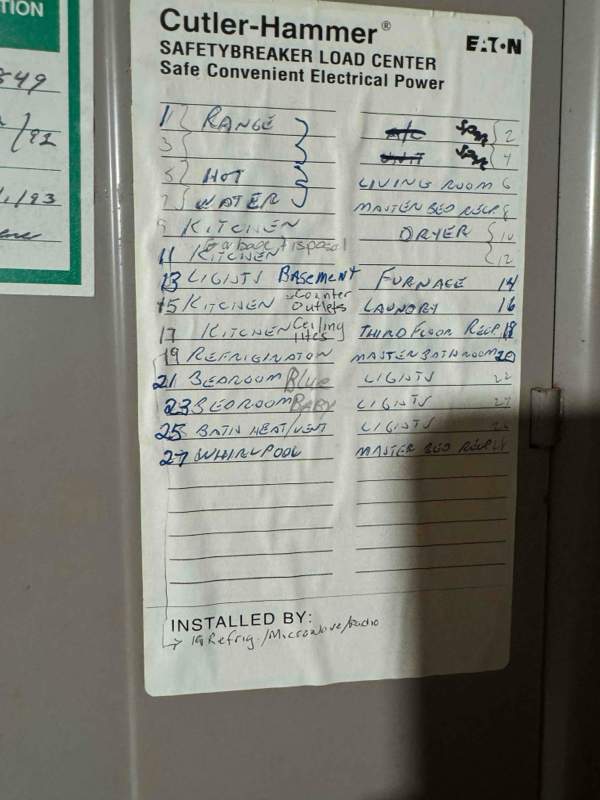 TION
Cutler-Hammer®
EATON
SAFETYBREAKER LOAD CENTER
Safe Convenient Electrical Power
1 RANGE
3
5 HOT
7 WATER
9 KITCHEN
Garbage Disposal
11 KITCHEN
13 LIGHTS BASEMENT
15 KITCHEN Counter Outlets
17 KITCHEN Ceiling
19 REFRIGIRATOR
21 BEDROOM Blue
23 BEDROOM BABY
25 BATH HEAT/VENT
27 WHIRLPOOL
A/C 2
UNIT 4
LIVING ROOM 6
MASTER BED RECP 8
DRYER 10
12
FURNACE 14
LAUNDRY 16
THIRD FLOOR RECP 18
MASTER BATHROOM 20
LIGHTS 22
LIGHTS
LIGHTS
MASTER BED RECP
INSTALLED BY:
19 Refrig./Microwave/Radio